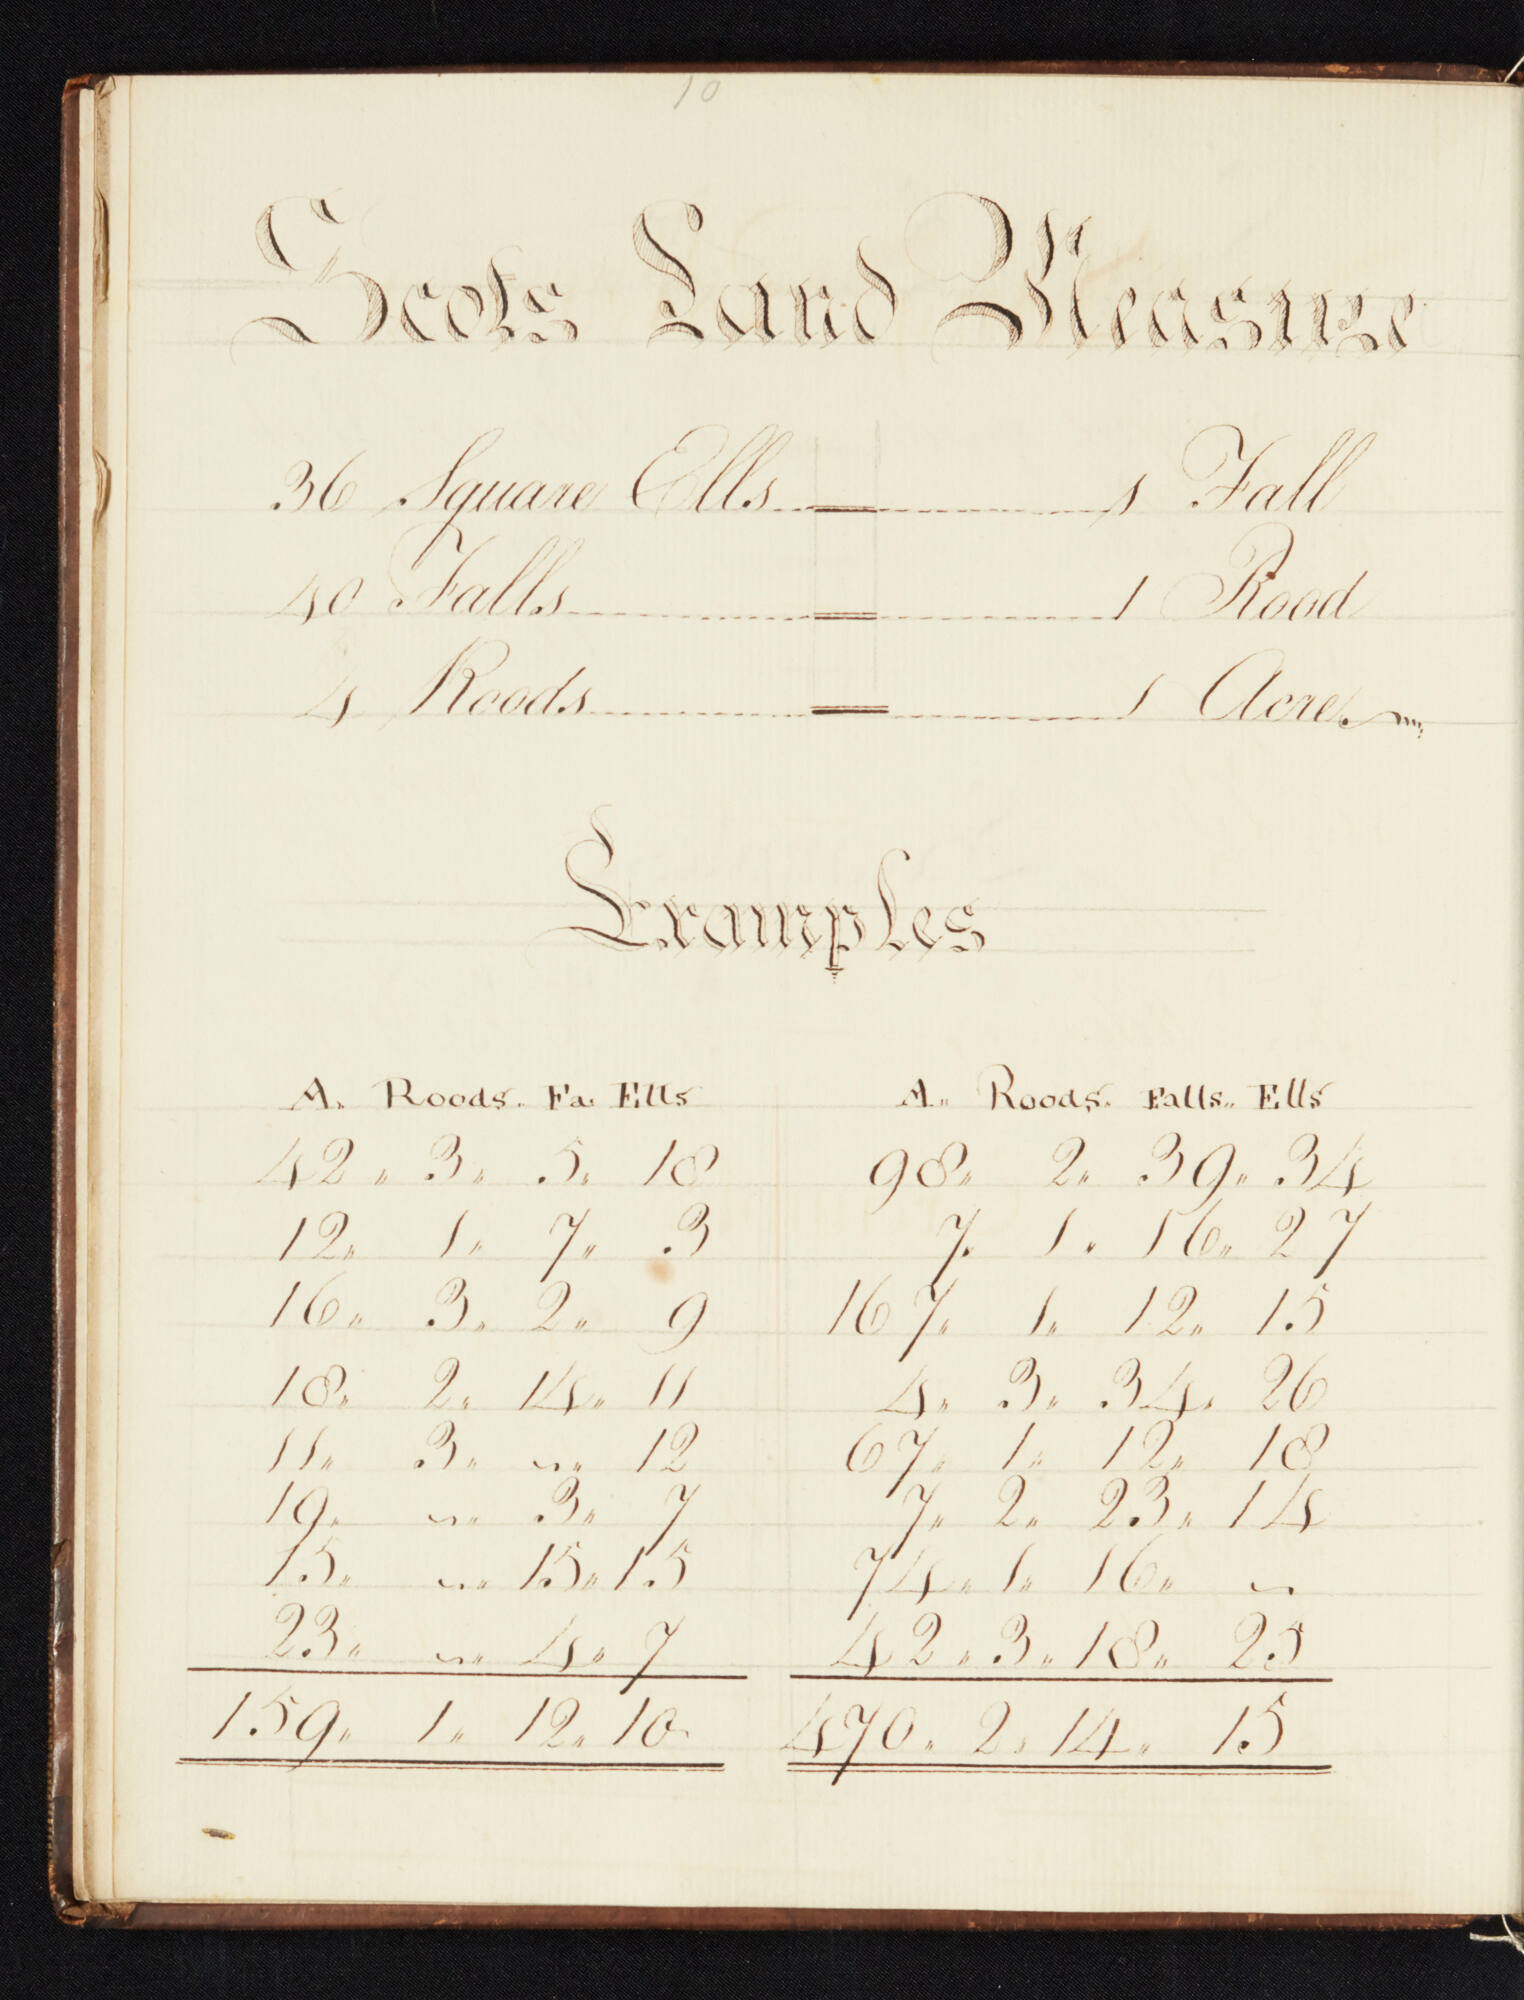 10
Scots Land Measure
36 Square Ells = 1 Fall
40 Falls = 1 Rood
4 Roods = 1 Acre
Examples
A. Roods. Fa. Ells
42 " 3 " 5 " 18
12 " 1 " 7 " 3
16 " 3 " 2 " 9
18 " 2 " 14 " 11
11 " 3 " ~ " 12
19 " ~ " 3 " 7
15 " ~ " 15 " 15
23 " ~ " 4 " 7
159 " 1 " 12 " 10
A. Roods. Falls. Ells
98 " 2 " 39 " 34
7 " 1 " 16 " 27
167 " 1 " 12 " 15
4 " 3 " 34 " 26
67 " 1 " 12 " 18
7 " 2 " 23 " 14
74 " 1 " 16 " ~
42 " 3 " 18 " 25
470 " 2 " 14 " 15